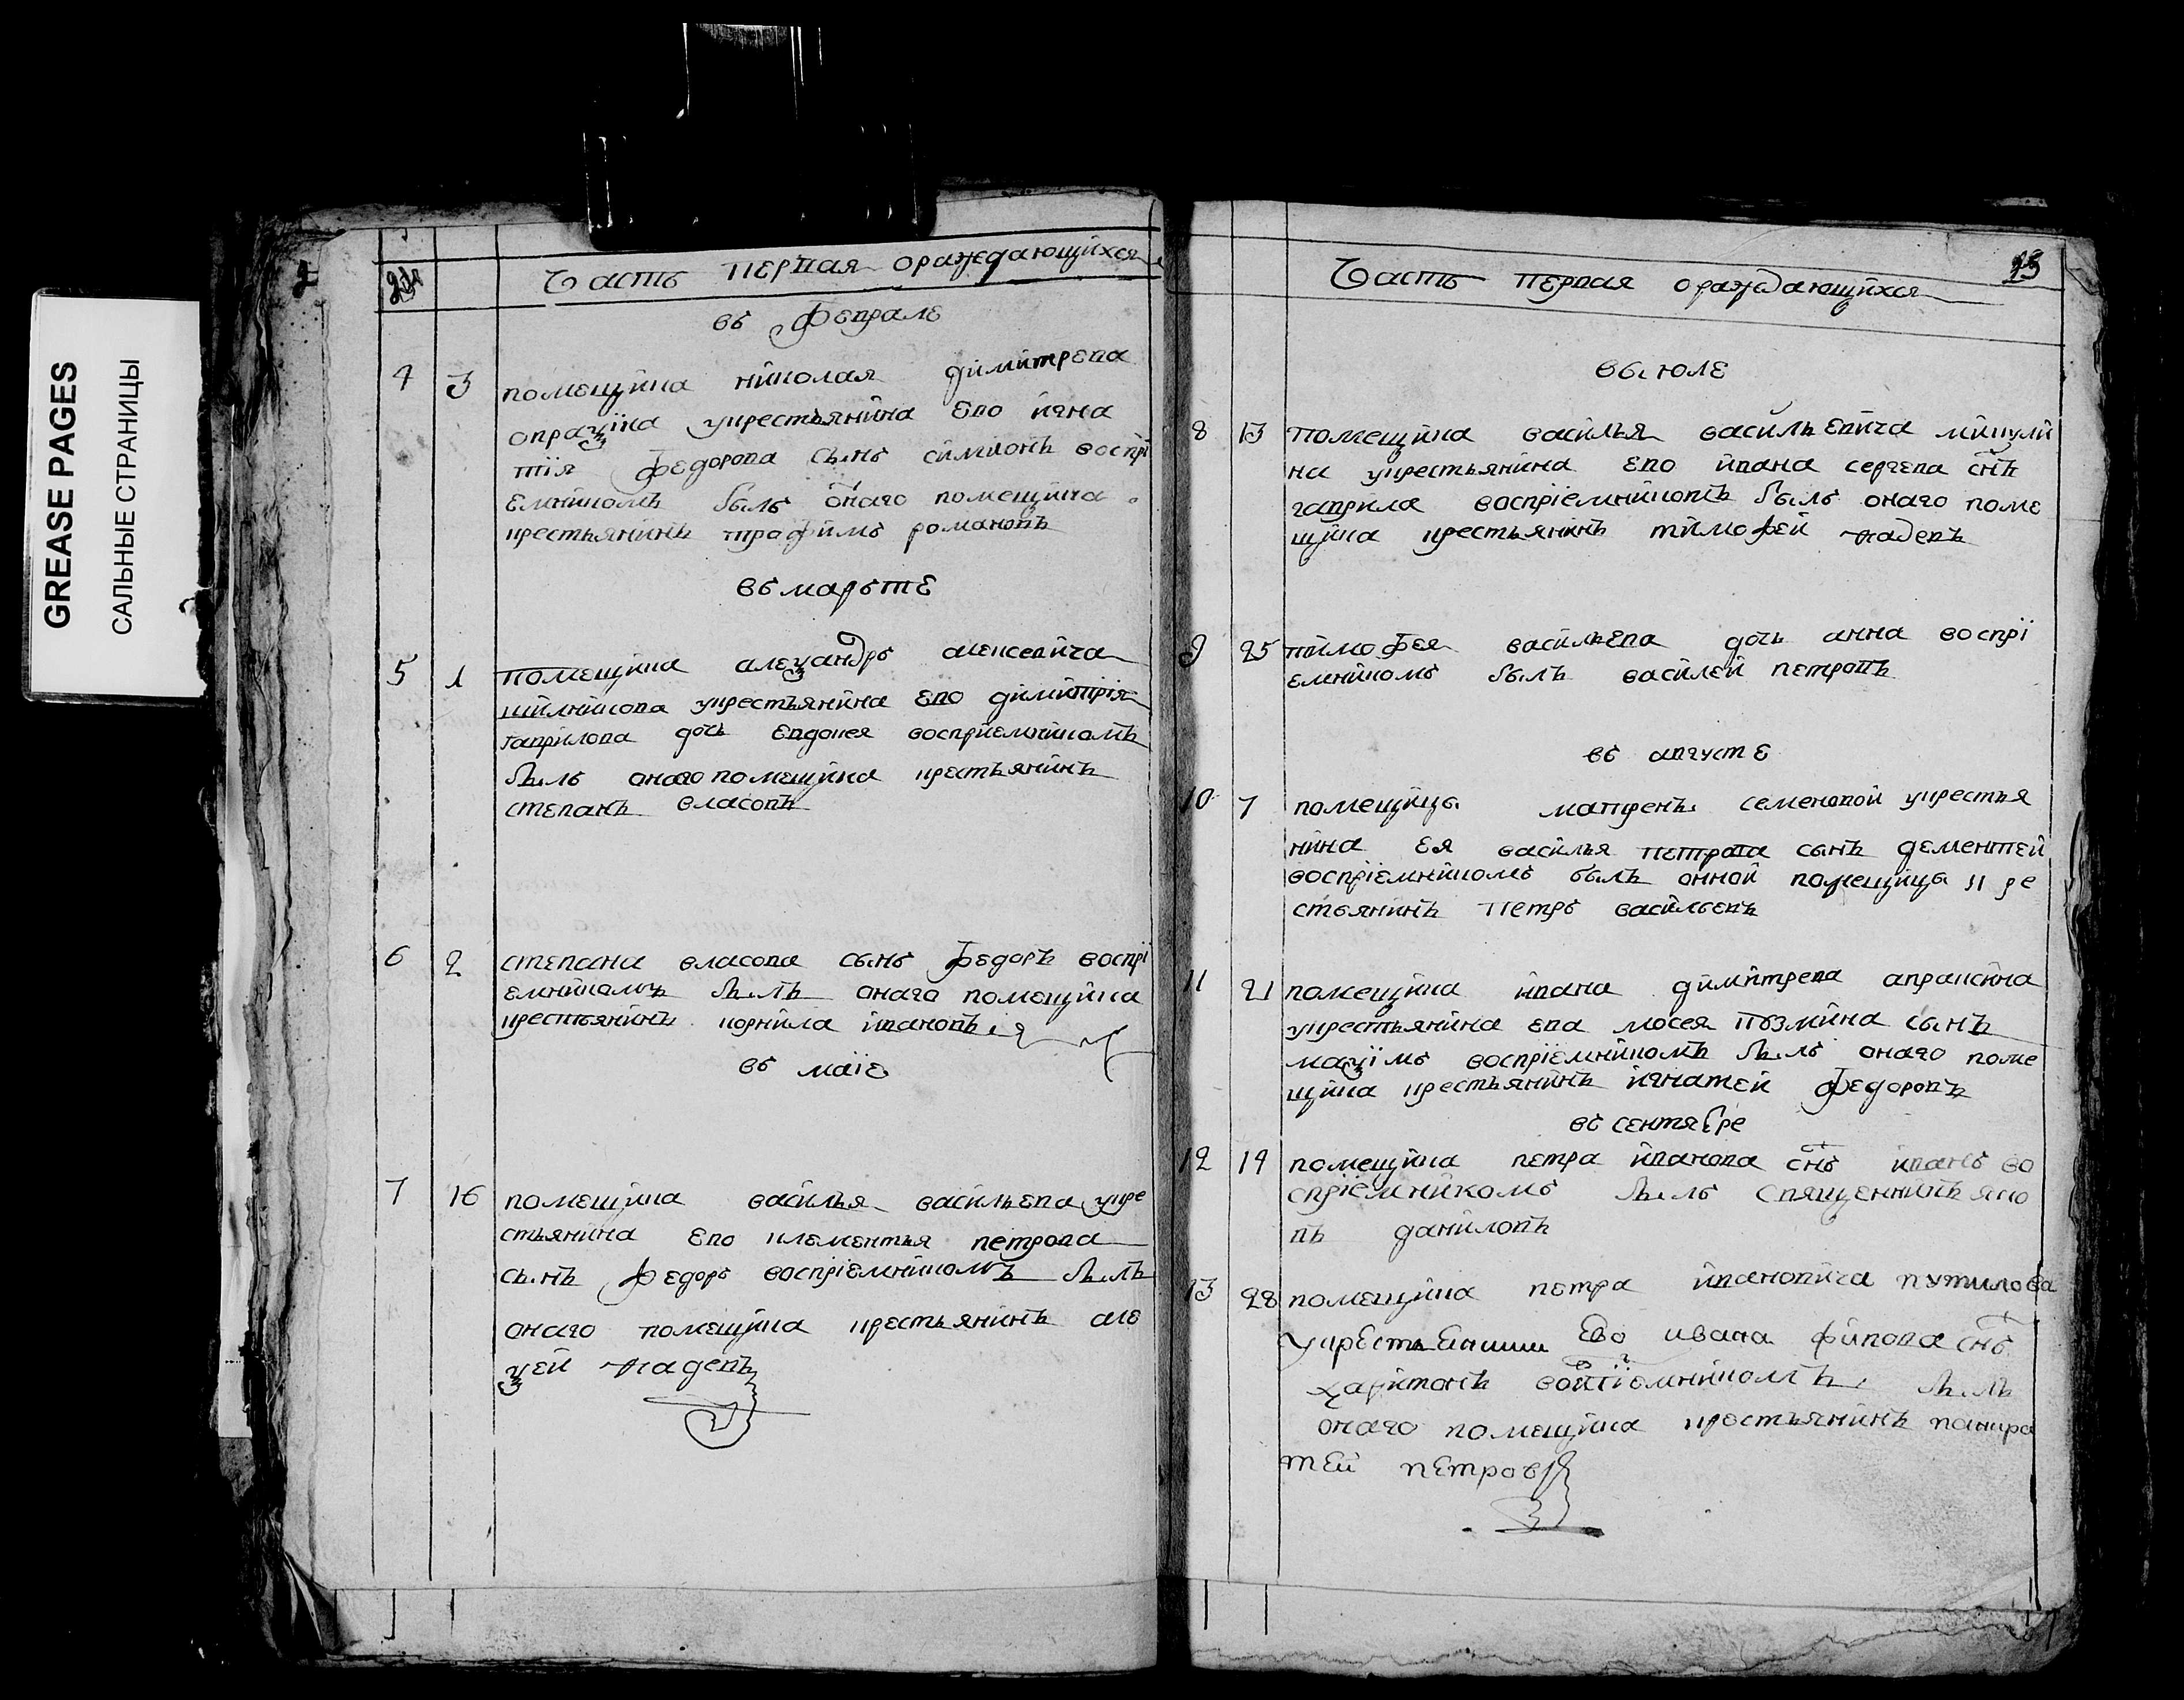 GREASE PAGES
САЛЬНЫЕ СТРАНИЦЫ
Часть первая ораждающихся
въ феврале
4 3 помещика николая димитрева
опраѯіна укрестьянина ево игна
тія федорова сынъ симионъ воспрі
емникомъ былъ онаго помещика
крестьянинъ трофимъ романовъ
въ марьте
5 1 помещика алеѯандръ алексевича
шилникова укрестьянина ево димитрія
гаврилова дочь евдокея воспріемникомъ
былъ онаго помещика крестьянинъ
степанъ власовъ
6 2 степана власова сынъ федоръ воспрі
емникомъ былъ онаго помещика
крестьянинъ корнила івановъ
въ маіе
7 16 помещика василья васильева укре
стьянина ево клементья петрова
сынъ федоръ воспріемникомъ былъ
онаго помещика крестьянинъ але
ѯей фадевъ
23
Часть первая ораждающихся
въ июле
8 13 помещика василья васильевича микули
на укрестьянина ево ивана сергева снъ
гаврила воспріемникомъ былъ онаго поме
щика крестьянинъ тимофей фадевъ
9 25 тимофея васильева дочь анна воспрі
емникомъ былъ василей петровъ
въ августе
10 7 помещицы матрены семеновой укрестья
нина ея василья петрова сынъ дементей
воспріемникомъ былъ онной помещицы кре
стьянинъ петръ васильевъ
11 21 помещика ивана димитрева апраксина
укрестьянина ева мосея козмина сынъ
маѯімъ воспріемникомъ былъ онаго поме
щика крестьянинъ игнатей федоровъ
въ сентябре
12 14 помещика петра иванова снъ иванъ во
спріемникомъ былъ священникъ яко
въ даниловъ
13 28 помещика петра ивановича путилова
укрестьенини Ево ивана филова снъ
харитонъ воспіемникомъ былъ
онаго помещика крестьянинъ панкра
тей петровъ